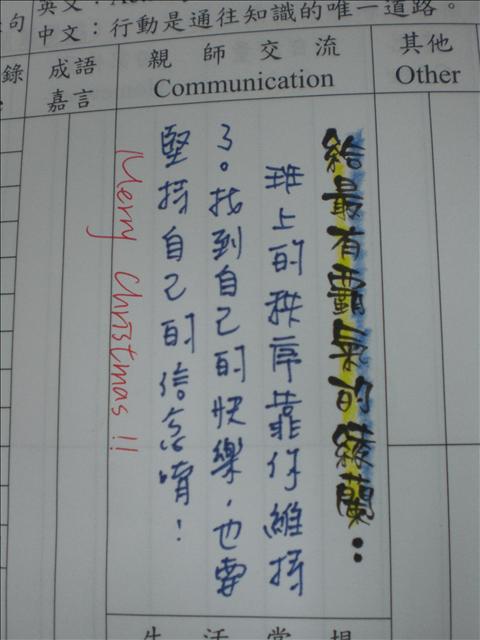 中文：行動是通往知識的唯一道路。
成語
嘉言
親師交流
Communication
其他
Other
給最有霸氣的綾蘭：
班上的秩序靠你維持
了。找到自己的快樂，也要
堅持自己的信念唷！
Merry Christmas !!